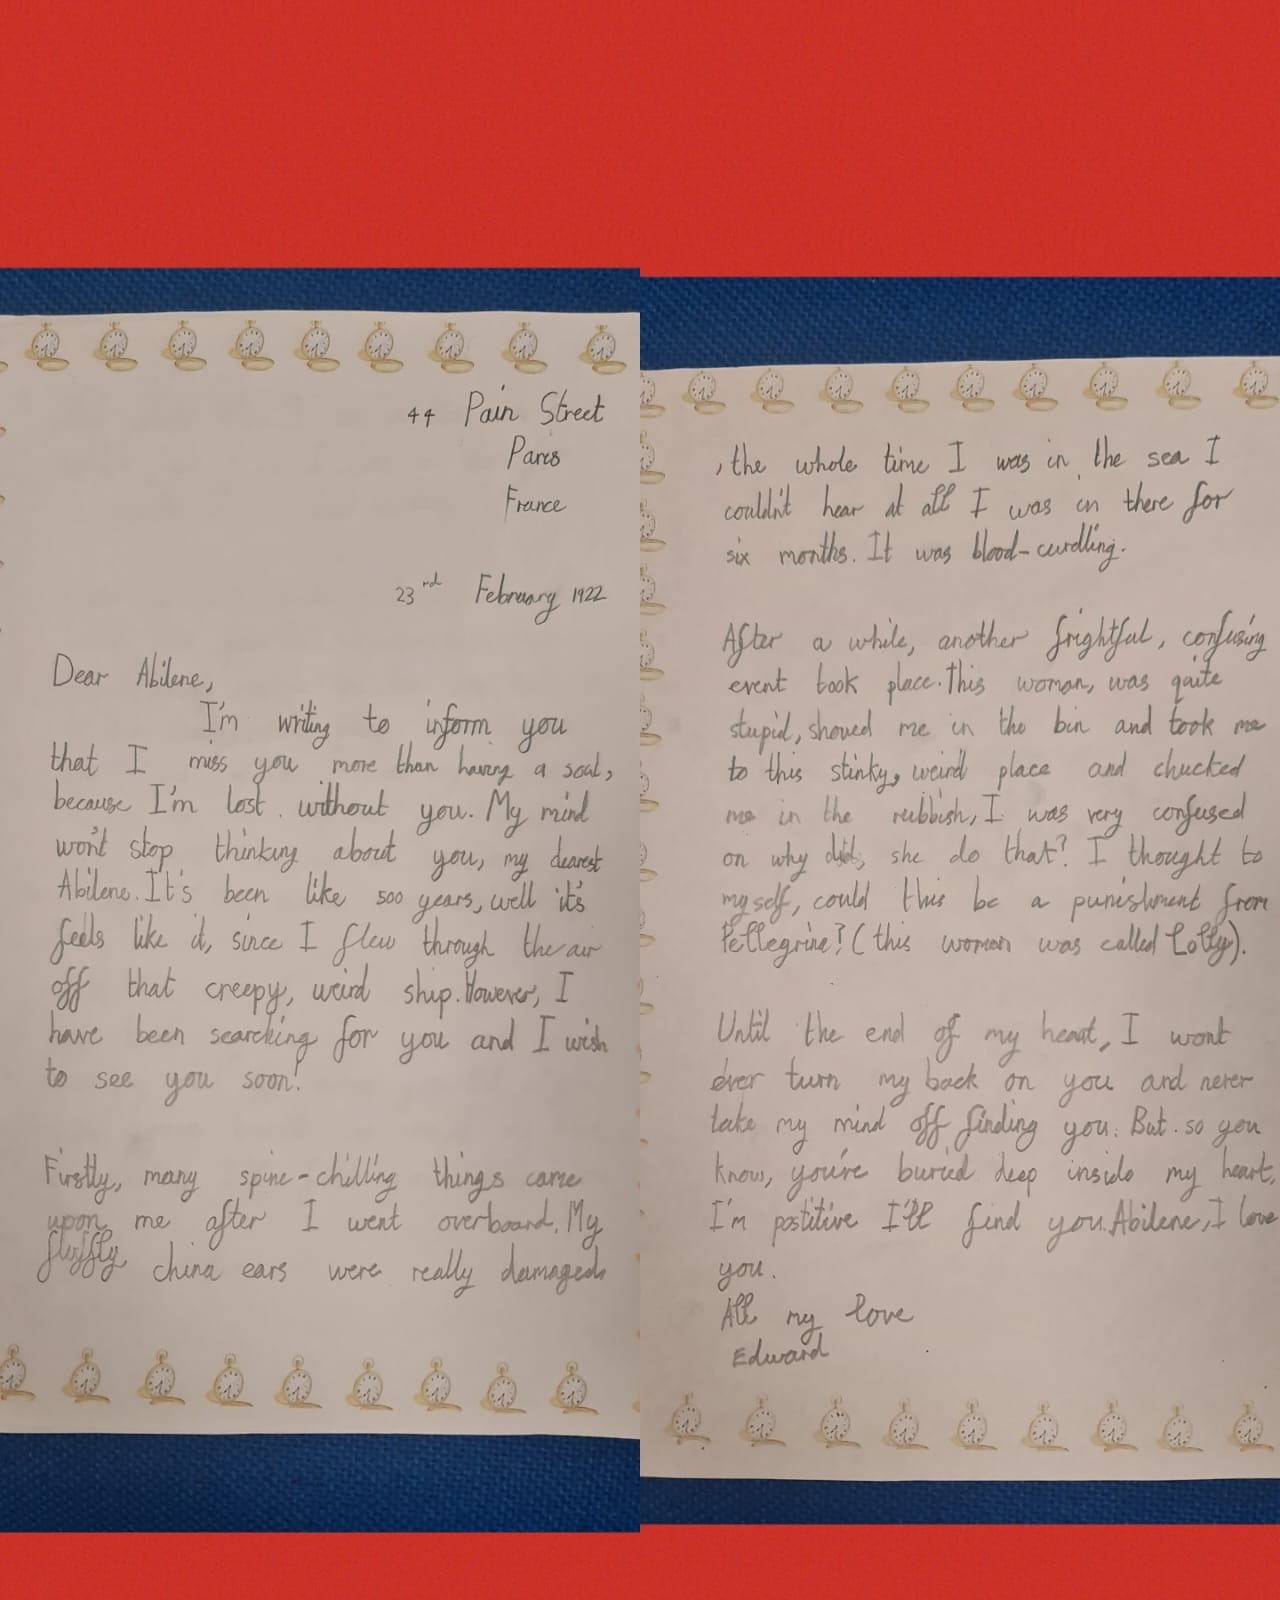 44 Pain Street
Paris
France
23rd February 1922
Dear Abilene,
I'm writing to inform you
that I miss you more than having a soul,
because I'm lost without you. My mind
won't stop thinking about you, my dearest
Abilene. It's been like 500 years, well it's
feels like it, since I flew through the air
off that creepy, weird ship. However, I
have been searching for you and I wish
to see you soon!
Firstly, many spine-chilling things came
upon me after I went overboard. My
fluffly china ears were really damaged
, the whole time I was in the sea I
couldn't hear at all I was in there for
six months. It was blood-curdling.
After a while, another frightful, confusing
event took place. This woman, was quite
stupid, shoved me in the bin and took me
to this stinky, weird place and chucked
me in the rubbish, I was very confused
on why did, she do that? I thought to
myself, could this be a punishment from
Pellegrina? (this woman was called Lolly).
Until the end of my heart, I wont
ever turn my back on you and never
take my mind off finding you. But so you
know, you're buried deep inside my heart.
I'm postitive I'll find you. Abilene, I love
you.
All my love
Edward